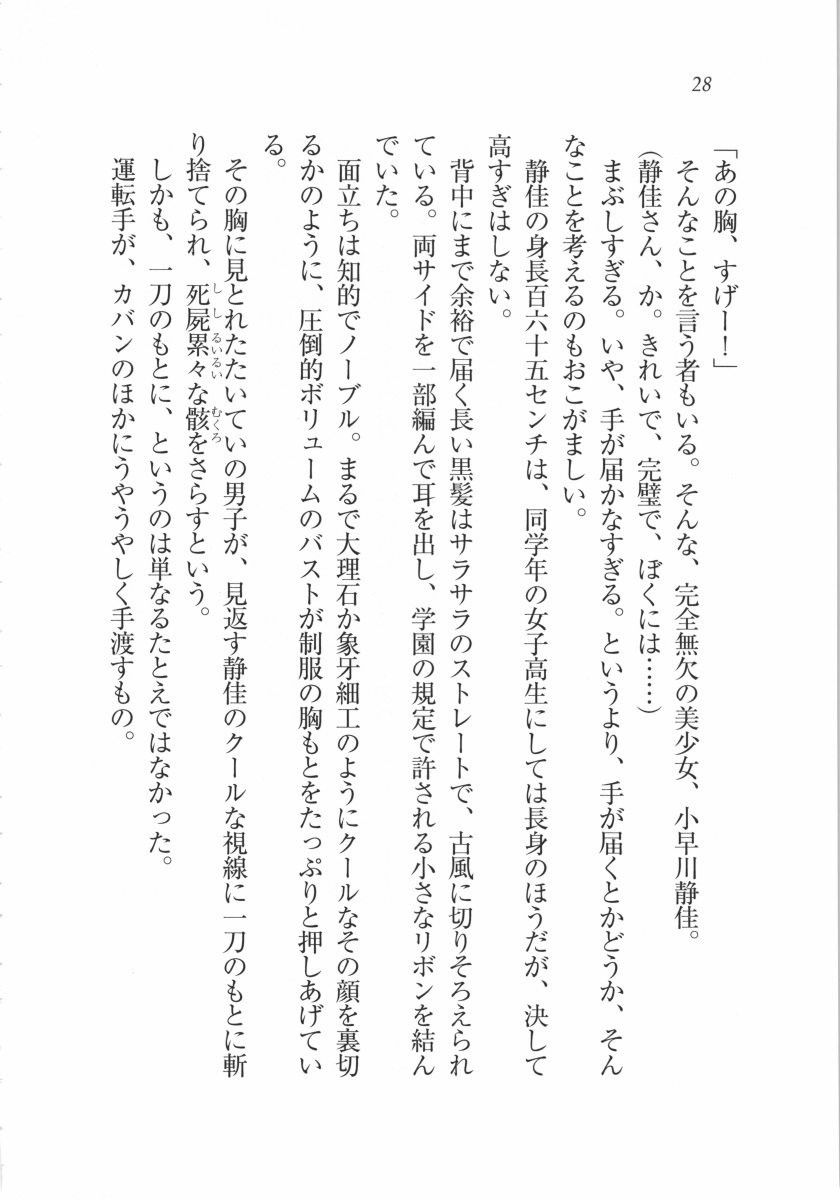 28
「あの胸、すげー！」
そんなことを言う者もいる。そんな、完全無欠の美少女、小早川静佳。
（静佳さん、か。きれいで、完璧で、ぼくには……）
まぶしすぎる。いや、手が届かなすぎる。というより、手が届くとかどうか、そん
なことを考えるのもおこがましい。
静佳の身長百六十五センチは、同学年の女子高生にしては長身のほうだが、決して
高すぎはしない。
背中にまで余裕で届く長い黒髪はサラサラのストレートで、古風に切りそろえられ
ている。両サイドを一部編んで耳を出し、学園の規定で許される小さなリボンを結ん
でいた。
面立ちは知的でノーブル。まるで大理石か象牙細工のようにクールなその顔を裏切
るかのように、圧倒的ボリュームのバストが制服の胸もとをたっぷりと押しあげてい
る。
その胸に見とれたたいていの男子が、見返す静佳のクールな視線に一刀のもとに斬
り捨てられ、死屍累々な骸をさらすという。
ししるいるい むくろ
しかも、一刀のもとに、というのは単なるたとえではなかった。
運転手が、カバンのほかにうやうやしく手渡すもの。